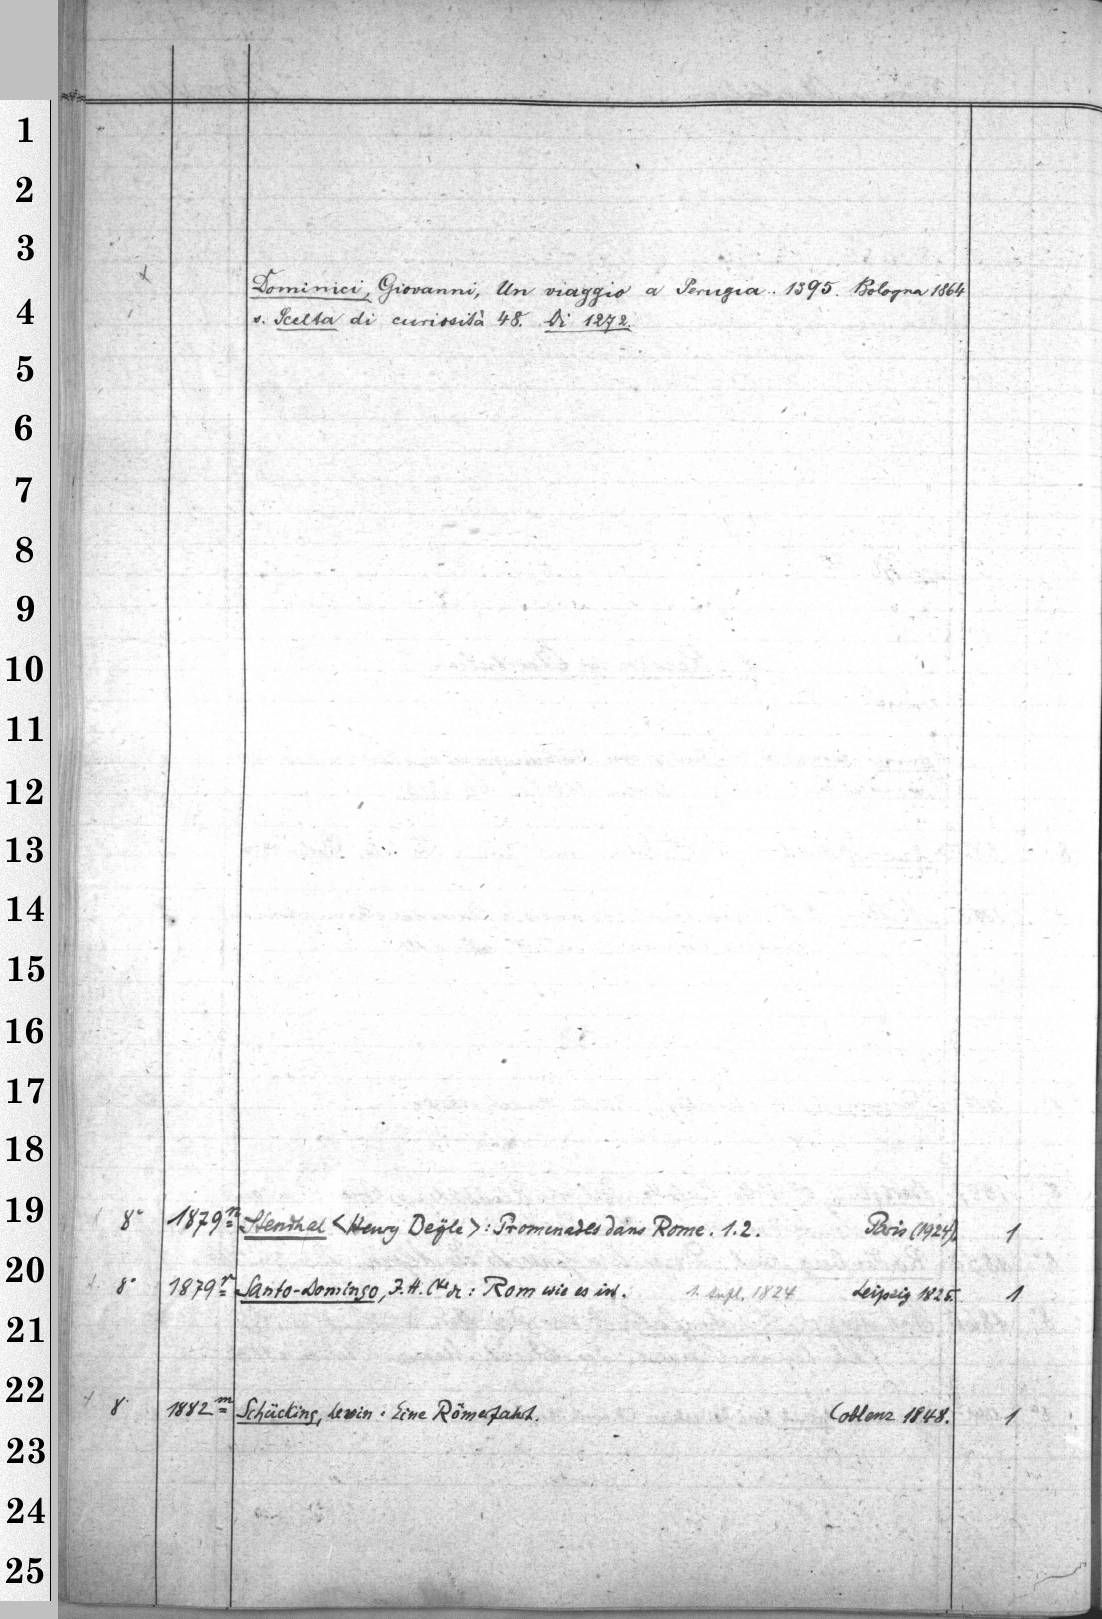 Dominici, Giovanni, Un viaggio a Perugia. 1395. Bologna 1864
s. Scelta di curiosità 48. Di 1272.
8° 1879n Stendhal <Henry Beyle>: Promenades dans Rome. 1.2. Paris (1924). 1
8° 1879r Santo-Domingo, J. H. Cte de: Rom wie es ist. 1. Aufl. 1824 Leipzig 1825. 1
8° 1882m Schücking, Levin. Eine Römerfahrt. Coblenz 1848. 1